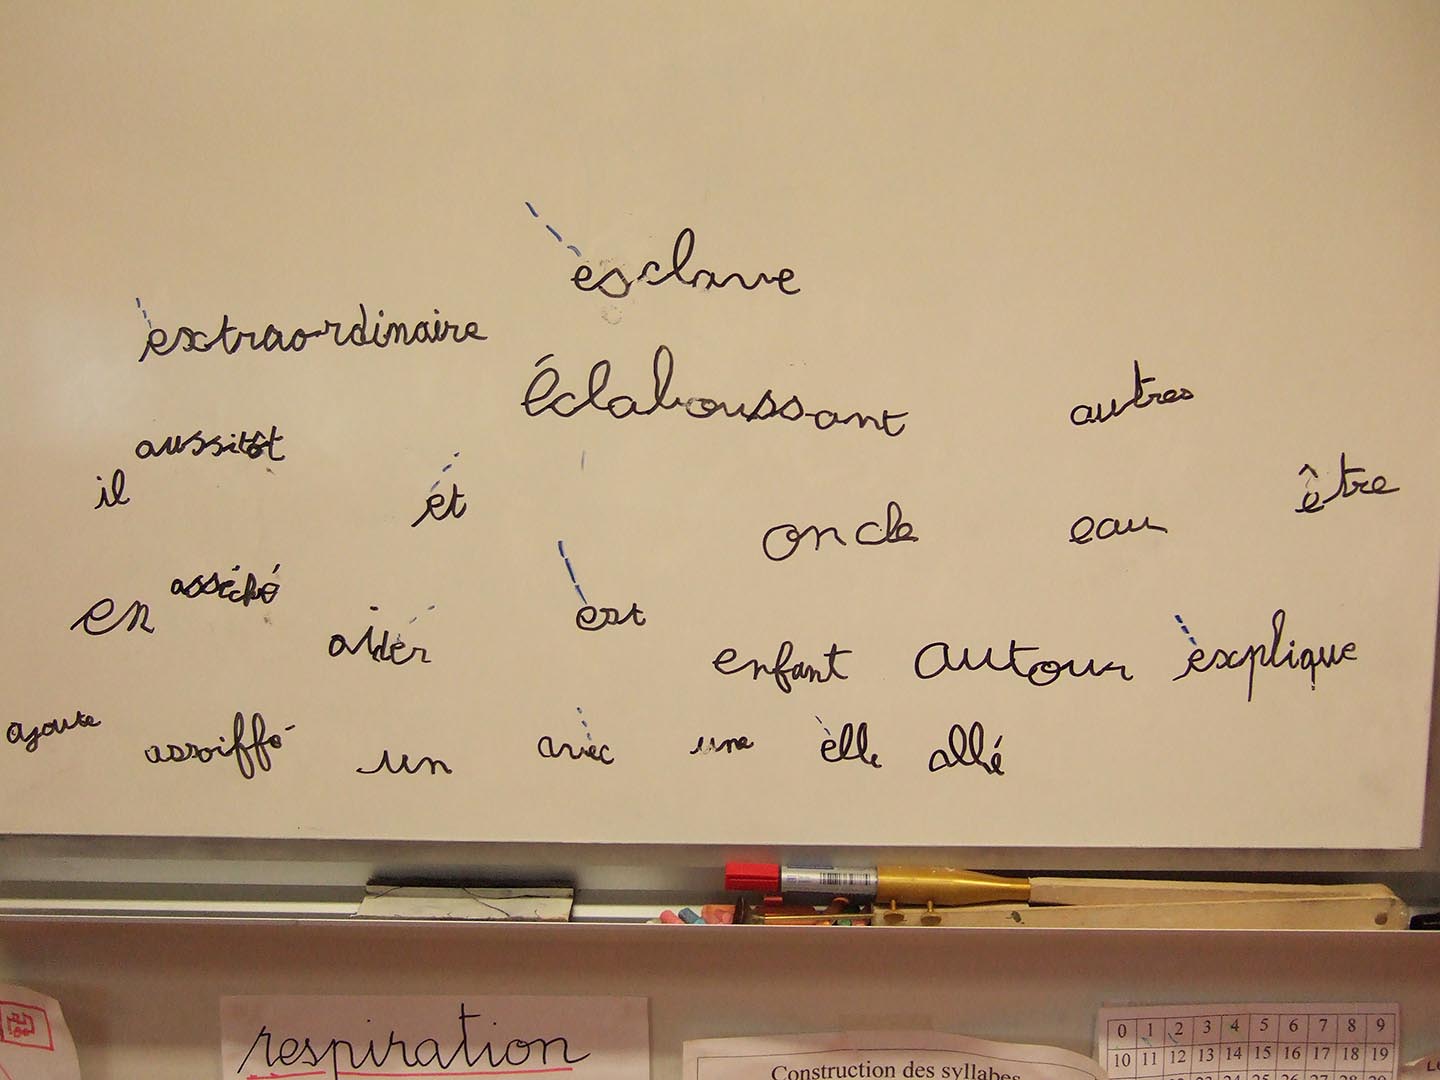 esclave
extraordinaire
éclaboussant
autres
aussitôt
il
et
oncle
eau
être
en
asséché
aider
est
enfant
autour
explique
ajoute
assoiffé
un
avec
une
elle
allé
respiration
Construction des syllabes
0 1 2 3 4 5 6 7 8 9
10 11 12 13 14 15 16 17 18 19